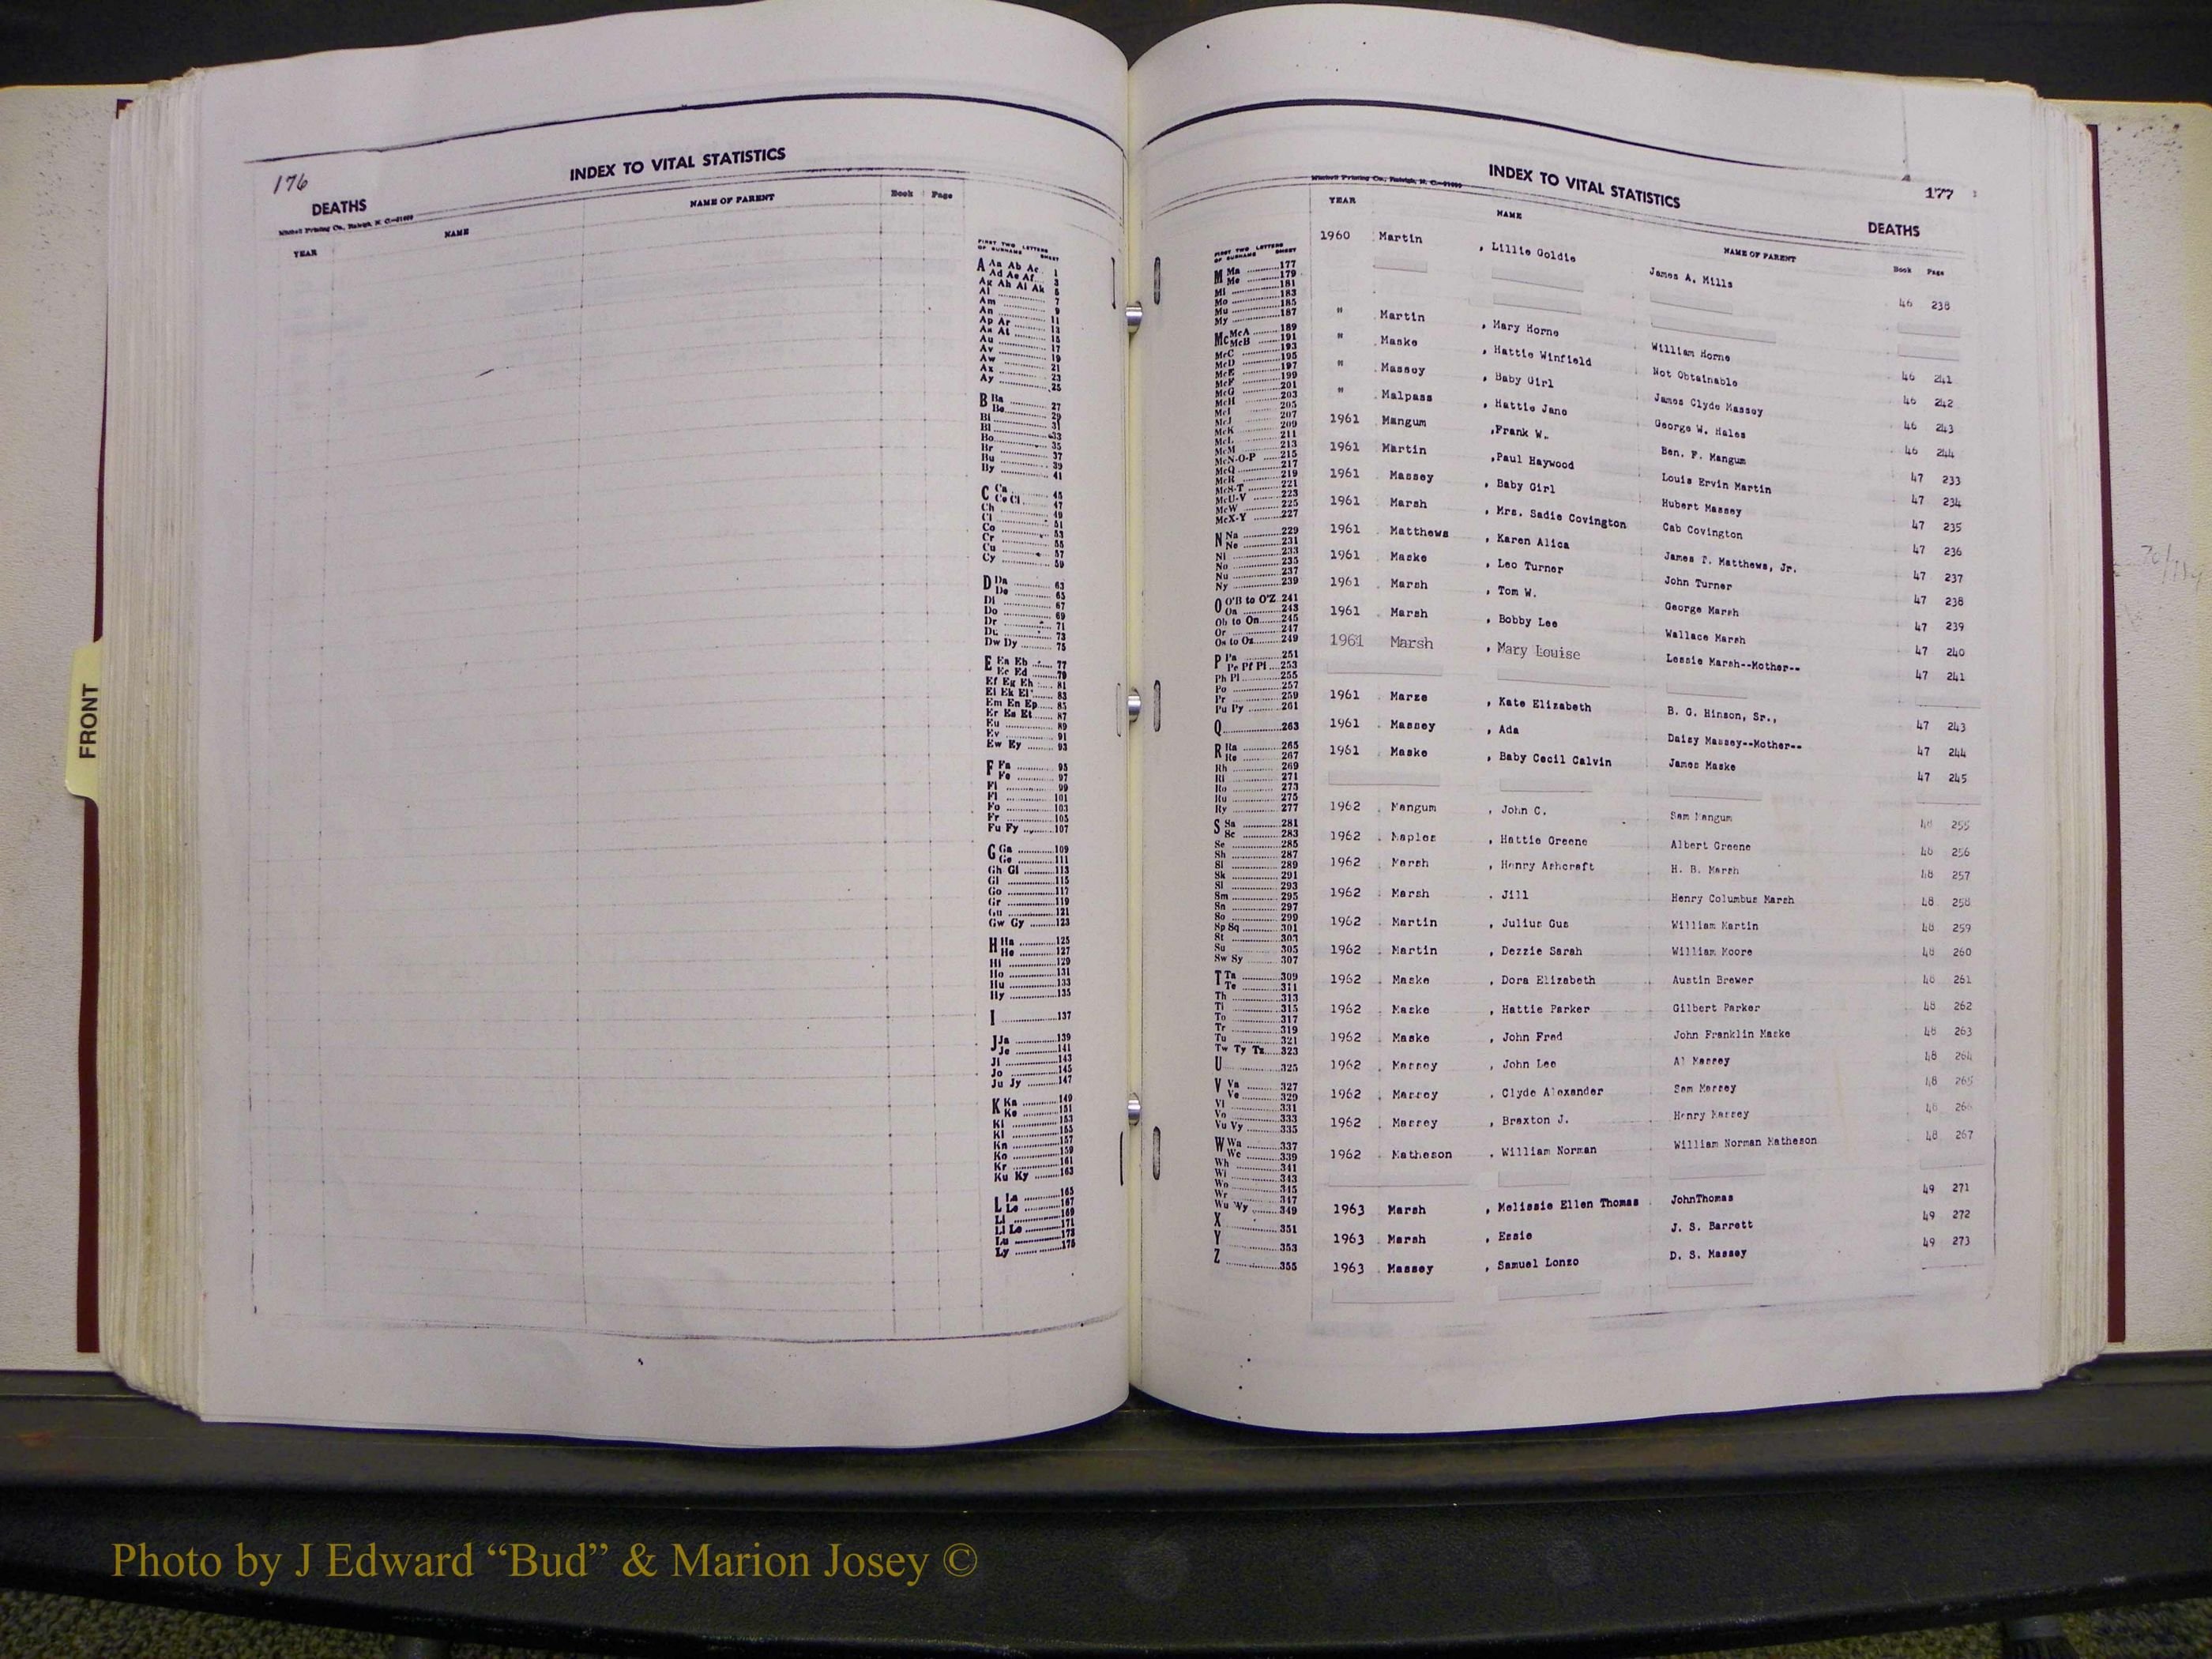 176
INDEX TO VITAL STATISTICS
DEATHS
Mitchell Printing Co., Raleigh, N. C.
YEAR NAME NAME OF PARENT Book Page
FIRST TWO LETTERS
OF SURNAME SHEET
A Aa Ab Ac 1
Ad Ae Af 3
Ag Ah Ai Ak 5
Al 7
Am 9
An 11
Ap Ar 13
As At 15
Au 17
Av 19
Aw 21
Ax 23
Ay 25
B Ba 27
Be 29
Bi 31
Bl 33
Bo 35
Br 37
Bu 39
By 41
C Ca 45
Ce Ci 47
Ch 49
Cl 51
Co 53
Cr 55
Cu 57
Cy 59
D Da 63
De 65
Di 67
Do 69
Dr 71
Du 73
Dw Dy 75
E Ea Eb 77
Ec Ed 79
Ef Eg Eh 81
Ei Ek El 83
Em En Ep 85
Er Es Et 87
Eu 89
Ev 91
Ew Ey 93
F Fa 95
Fe 97
Fi 99
Fl 101
Fo 103
Fr 105
Fu Fy 107
G Ga 109
Ge 111
Gh Gi 113
Gl 115
Go 117
Gr 119
Gu 121
Gw Gy 123
H Ha 125
He 127
Hi 129
Ho 131
Hu 133
Hy 135
I 137
J Ja 139
Je 141
Ji 143
Jo 145
Ju Jy 147
K Ka 149
Ke 151
Ki 153
Kl 155
Kn 157
Ko 159
Kr 161
Ku Ky 163
L La 165
Le 167
Li 169
Ll Lo 171
Lu 173
Ly 175
FRONT
INDEX TO VITAL STATISTICS
177
DEATHS
Mitchell Printing Co., Raleigh, N. C.
YEAR NAME NAME OF PARENT Book Page
FIRST TWO LETTERS
OF SURNAME SHEET
M Ma 177
Me 179
Mi 181
Mo 183
Mu 185
My 187
Mc McA 189
McB 191
McC 193
McD 195
McE 197
McF 199
McG 201
McH 203
McI 205
McJ 207
McK 209
McL 211
McM 213
McN-O-P 215
McQ 217
McR 219
McS-T 221
McU-V 223
McW 225
McX-Y 227
N Na 229
Ne 231
Ni 233
No 235
Nu 237
Ny 239
O O'B to O'Z 241
Oa 243
Ob to On 245
Or 247
Os to Oz 249
P Pa 251
Pe Pf Pi 253
Ph Pl 255
Po 257
Pr 259
Pu Py 261
Q 263
R Ra 265
Re 267
Rh 269
Ri 271
Ro 273
Ru 275
Ry 277
S Sa 281
Sc 283
Se 285
Sh 287
Si 289
Sk 291
Sl 293
Sm 295
Sn 297
So 299
Sp Sq 301
St 303
Su 305
Sw Sy 307
T Ta 309
Te 311
Th 313
Ti 315
To 317
Tr 319
Tu 321
Tw Ty Tz 323
U 325
V Va 327
Ve 329
Vi 331
Vo 333
Vu Vy 335
W Wa 337
We 339
Wh 341
Wi 343
Wo 345
Wr 347
Wu Wy 349
X 351
Y 353
Z 355
1960 Martin , Lillie Goldie James A. Mills 46 238
" Martin , Mary Horne William Horne 46 241
" Maske , Hattie Winfield Not Obtainable 46 242
" Massey , Baby Girl James Clyde Massey 46 243
" Malpass , Hattie Jane George W. Hales 46 244
1961 Mangum ,Frank W. Ben. F. Mangum 47 233
1961 Martin ,Paul Haywood Louis Ervin Martin 47 234
1961 Massey , Baby Girl Hubert Massey 47 235
1961 Marsh , Mrs. Sadie Covington Cab Covington 47 236
1961 Matthews , Karen Alica James T. Matthews, Jr. 47 237
1961 Maske , Leo Turner John Turner 47 238
1961 Marsh , Tom W. George Marsh 47 239
1961 Marsh , Bobby Lee Wallace Marsh 47 240
1961 Marsh , Mary Louise Lessie Marsh--Mother-- 47 241
1961 Marze , Kate Elizabeth B. G. Hinson, Sr., 47 243
1961 Massey , Ada Daisy Massey--Mother-- 47 244
1961 Maske , Baby Cecil Calvin James Maske 47 245
1962 Mangum , John C. Sam Mangum 48 255
1962 Maples , Hattie Greene Albert Greene 48 256
1962 Marsh , Henry Ashcraft H. B. Marsh 48 257
1962 Marsh . Jill Henry Columbus Marsh 48 258
1962 Martin , Julius Gus William Martin 48 259
1962 Martin , Dezzie Sarah William Moore 48 260
1962 Maske , Dora Elizabeth Austin Brewer 48 261
1962 Maske , Hattie Parker Gilbert Parker 48 262
1962 Maske , John Fred John Franklin Maske 48 263
1962 Massey , John Lee Al Massey 48 264
1962 Massey , Clyde Alexander Sam Massey 48 265
1962 Massey , Braxton J. Henry Massey 48 266
1962 Matheson , William Norman William Norman Matheson 48 267
1963 Marsh , Melissie Ellen Thomas JohnThomas 49 271
1963 Marsh , Essie J. S. Barrett 49 272
1963 Massey , Samuel Lonzo D. S. Massey 49 273
Photo by J Edward “Bud” & Marion Josey ©